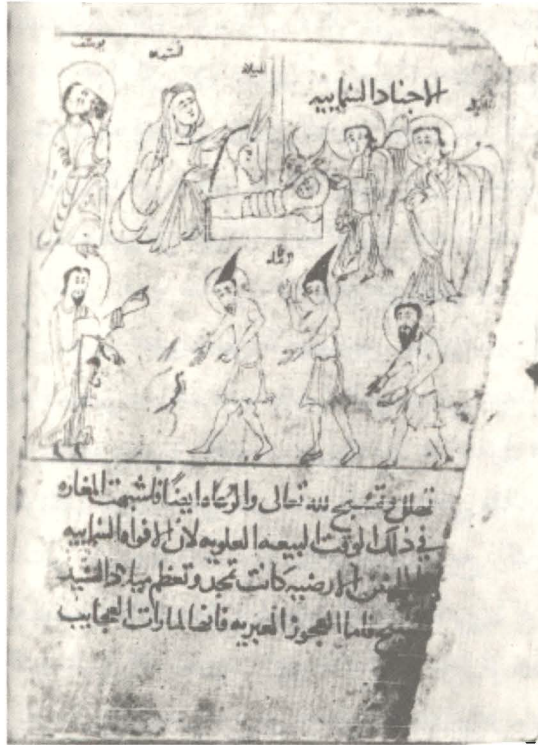 يوسف
السيده
الميلاد
الاجناد السماييه
الرعاه
وتسبح لله تعالى والرعاه ايضًا فاشبهت المغاره
في ذلك الوقت البيعه العلويه لان الافواه السماييه
الارضيه كانت تمجد وتعظم ميلاد السيد
فاما العجوز العبريه فانها لما رات العجايب